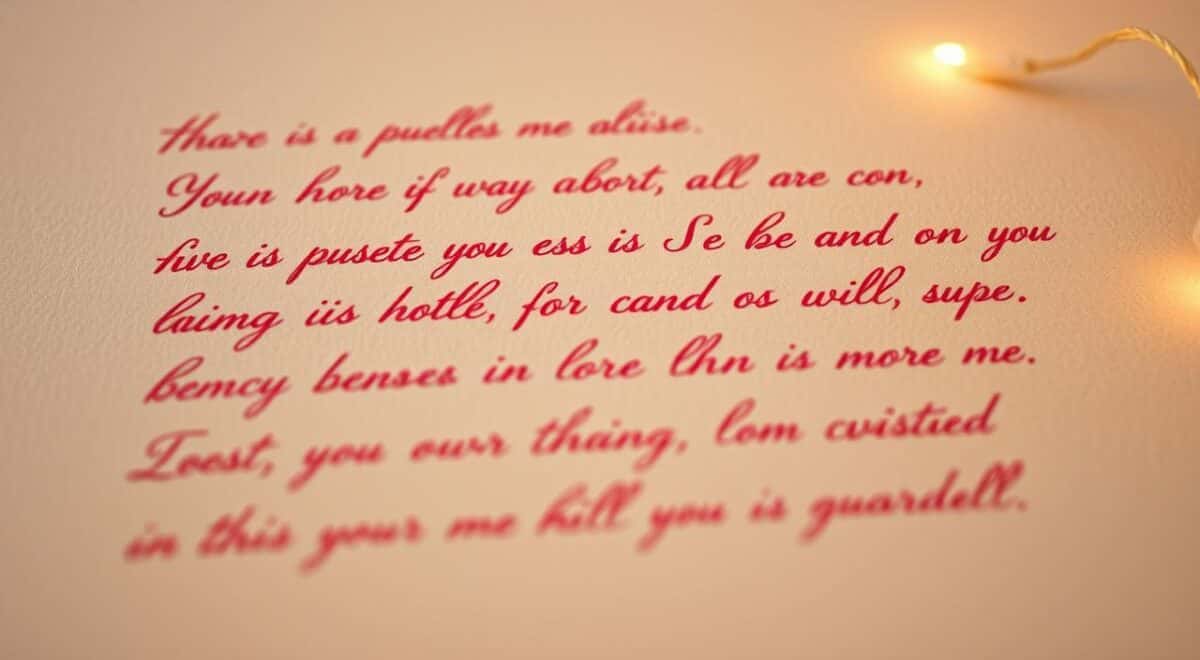 thare is a puelles me aliise.
Youn hore if way abort, all are con,
five is pusete you ess is Se be and on you
laimg iis hotle, for cand os will, supe.
bemcy benses in lore lhn is more me.
Toost, you owr thaing, lom cvistied
in this your me hill you is guardell.